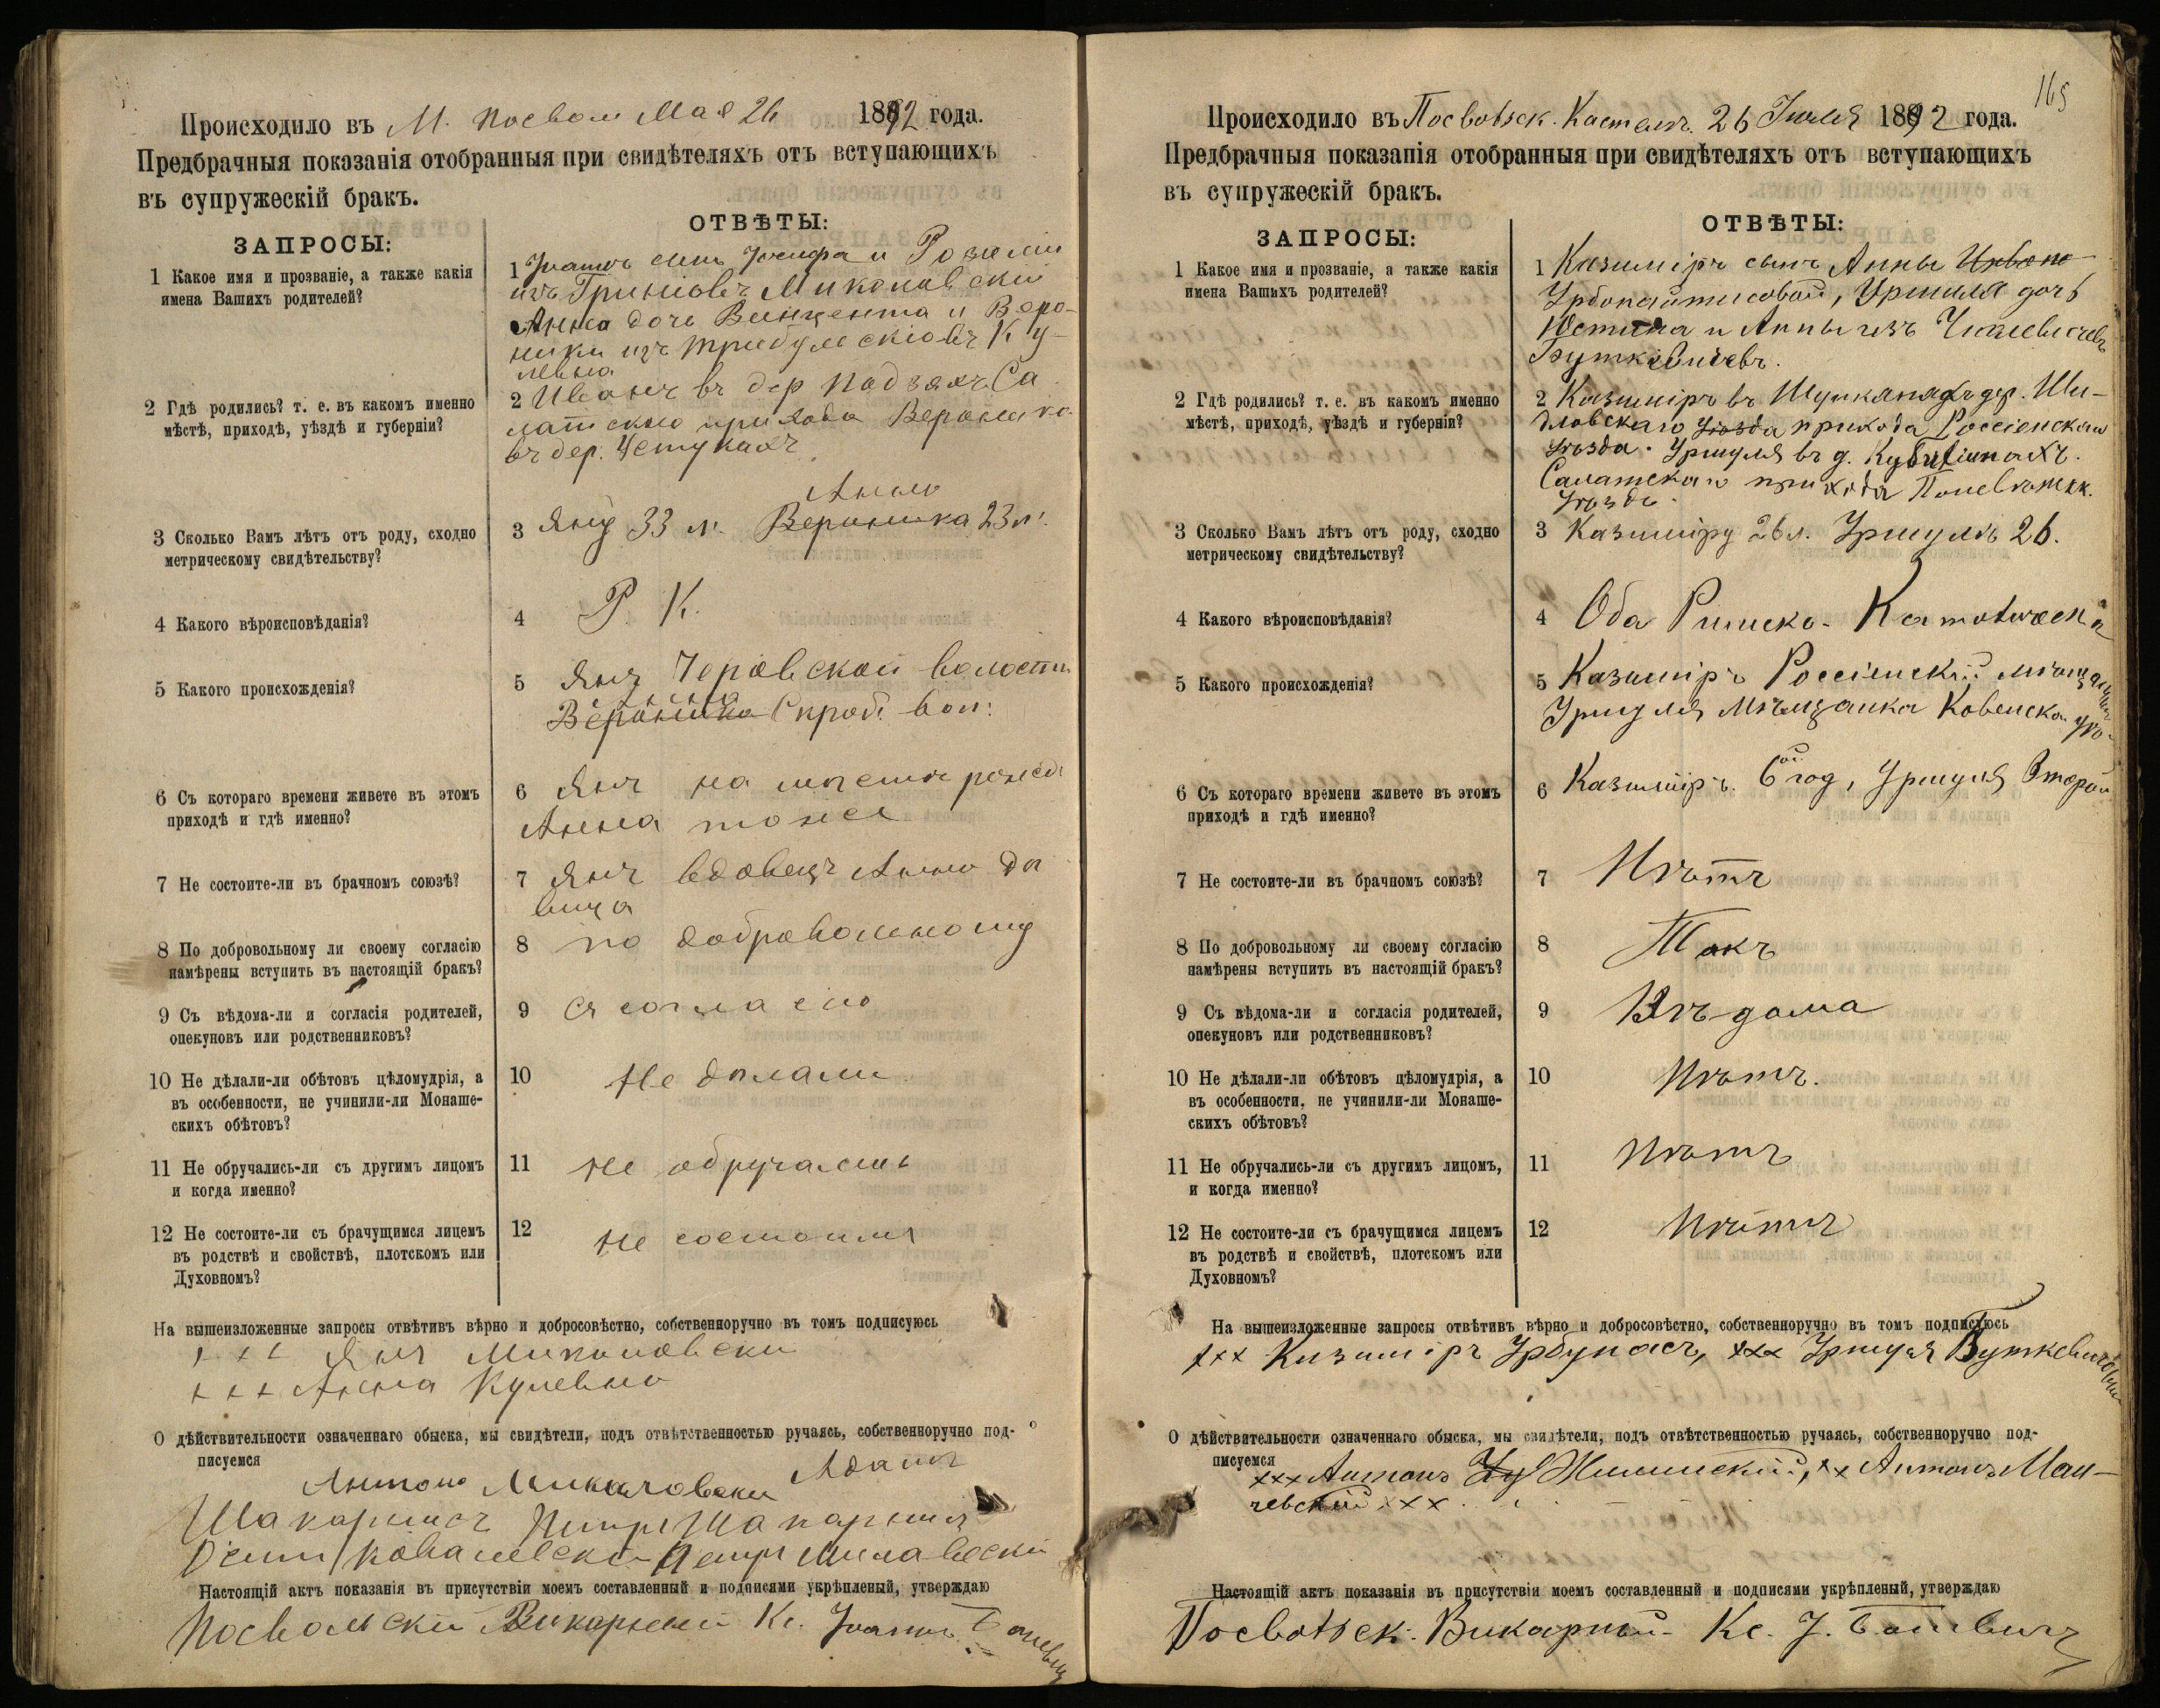 Происходило въ М. Посвол Мая 26 1892 года.
Предбрачныя показанія отобранныя при свидѣтеляхъ отъ вступающихъ
въ супружескій бракъ.
ЗАПРОСЫ:
ОТВѢТЫ:
1 Какое имя и прозваніе, а также какія
имена Вашихъ родителей?
1 сынъ Іосифа и Розаліи
изъ Миколовскій
Анна дочь Винцента и Веро-
ники изъ Ку-
левна
2 Гдѣ родились? т. е. въ какомъ именно
мѣстѣ, приходѣ, уѣздѣ и губерніи?
2 въ дер Са
латского прихода Вероника
въ дер.
3 Сколько Вамъ лѣтъ отъ роду, сходно
метрическому свидѣтельству?
Анна
3 Яну 33 л. Вероника 23 л.
4 Какого вѣроисповѣданія?
4 Р. К.
5 Какого происхожденія?
5 Янъ волости
Анна
Вероника Скроб. вол:
6 Съ котораго времени живете въ этомъ
приходѣ и гдѣ именно?
6 Янъ на мѣстѣ рожед
Анна тоже
7 Не состоите-ли въ брачномъ союзѣ?
7 Янъ вдовецъ Анна дѣ
вица
8 По добровольному ли своему согласію
намѣрены вступить въ настоящій бракъ?
8 по добровольному
9 Съ вѣдома-ли и согласія родителей,
опекуновъ или родственниковъ?
9 согласно
10 Не дѣлали-ли обѣтовъ цѣломудрія, а
въ особенности, не учинили-ли Монаше-
скихъ обѣтовъ?
10 Не дѣлали
11 Не обручались-ли съ другимъ лицомъ
и когда именно?
11 не обручались
12 Не состоите-ли съ брачущимся лицемъ
въ родствѣ и свойствѣ, плотскомъ или
Духовномъ?
12 не состоимъ
На вышеизложенные запросы отвѣтивъ вѣрно и добросовѣстно, собственноручно въ томъ подписуюсь
+ + + Янъ Миколовски
+ + + Анна Кулевна
О дѣйствительности означеннаго обыска, мы свидѣтели, подъ отвѣтственностью ручаясь, собственноручно под-
писуемся
Антонъ Миколовски Адамъ
Петръ
Ковалевски Петръ
Настоящій актъ показанія въ присутствіи моемъ составленный и подписями укрѣпленый, утверждаю
Посвольскій Викарный Кс.
165
Происходило въ Посвольск. Костелѣ. 26 Іюля 1892 года.
Предбрачныя показанія отобранныя при свидѣтеляхъ отъ вступающихъ
въ супружескій бракъ.
ЗАПРОСЫ:
ОТВѢТЫ:
1 Какое имя и прозваніе, а также какія
имена Вашихъ родителей?
1 Казиміръ сынъ Анны
Уршуля дочь
Юстина и Анны изъ
Буткевичевъ.
2 Гдѣ родились? т. е. въ какомъ именно
мѣстѣ, приходѣ, уѣздѣ и губерніи?
2 Казиміръ въ дер. Ши-
дловскаго уѣзда прихода Россіенскаго
уѣзда. Уршуля въ д.
Салатскаго прихода Поневѣжск.
уѣзда.
3 Сколько Вамъ лѣтъ отъ роду, сходно
метрическому свидѣтельству?
3 Казиміру 26 л. Уршулѣ 26.
4 Какого вѣроисповѣданія?
4 Оба Римско-Католическ
5 Какого происхожденія?
5 Казиміръ Россіенскій мѣщанинъ
Уршуля Мѣщанка Ковенска
6 Съ котораго времени живете въ этомъ
приходѣ и гдѣ именно?
6 Казиміръ. 6ой год, Уршуля Второй
7 Не состоите-ли въ брачномъ союзѣ?
7 Нѣтъ
8 По добровольному ли своему согласію
намѣрены вступить въ настоящій бракъ?
8 Такъ
9 Съ вѣдома-ли и согласія родителей,
опекуновъ или родственниковъ?
9 Вѣдома
10 Не дѣлали-ли обѣтовъ цѣломудрія, а
въ особенности, не учинили-ли Монаше-
скихъ обѣтовъ?
10 Нѣтъ.
11 Не обручались-ли съ другимъ лицомъ,
и когда именно?
11 Нѣтъ
12 Не состоите-ли съ брачущимся лицемъ
въ родствѣ и свойствѣ, плотскомъ или
Духовномъ?
12 Нѣтъ
На вышеизложенные запросы отвѣтивъ вѣрно и добросовѣстно, собственноручно въ томъ подписуюсь
xxx Казиміръ Урбунасъ, xxx Уршуля
О дѣйствительности означеннаго обыска, мы свидѣтели, подъ отвѣтственностью ручаясь, собственноручно под-
писуемся
xxx Антонъ xx Антонъ Ман-
чевскій xxx.
Настоящій актъ показанія въ присутствіи моемъ составленный и подписями укрѣпленый, утверждаю
Посвольск. Викарный Кс. І.